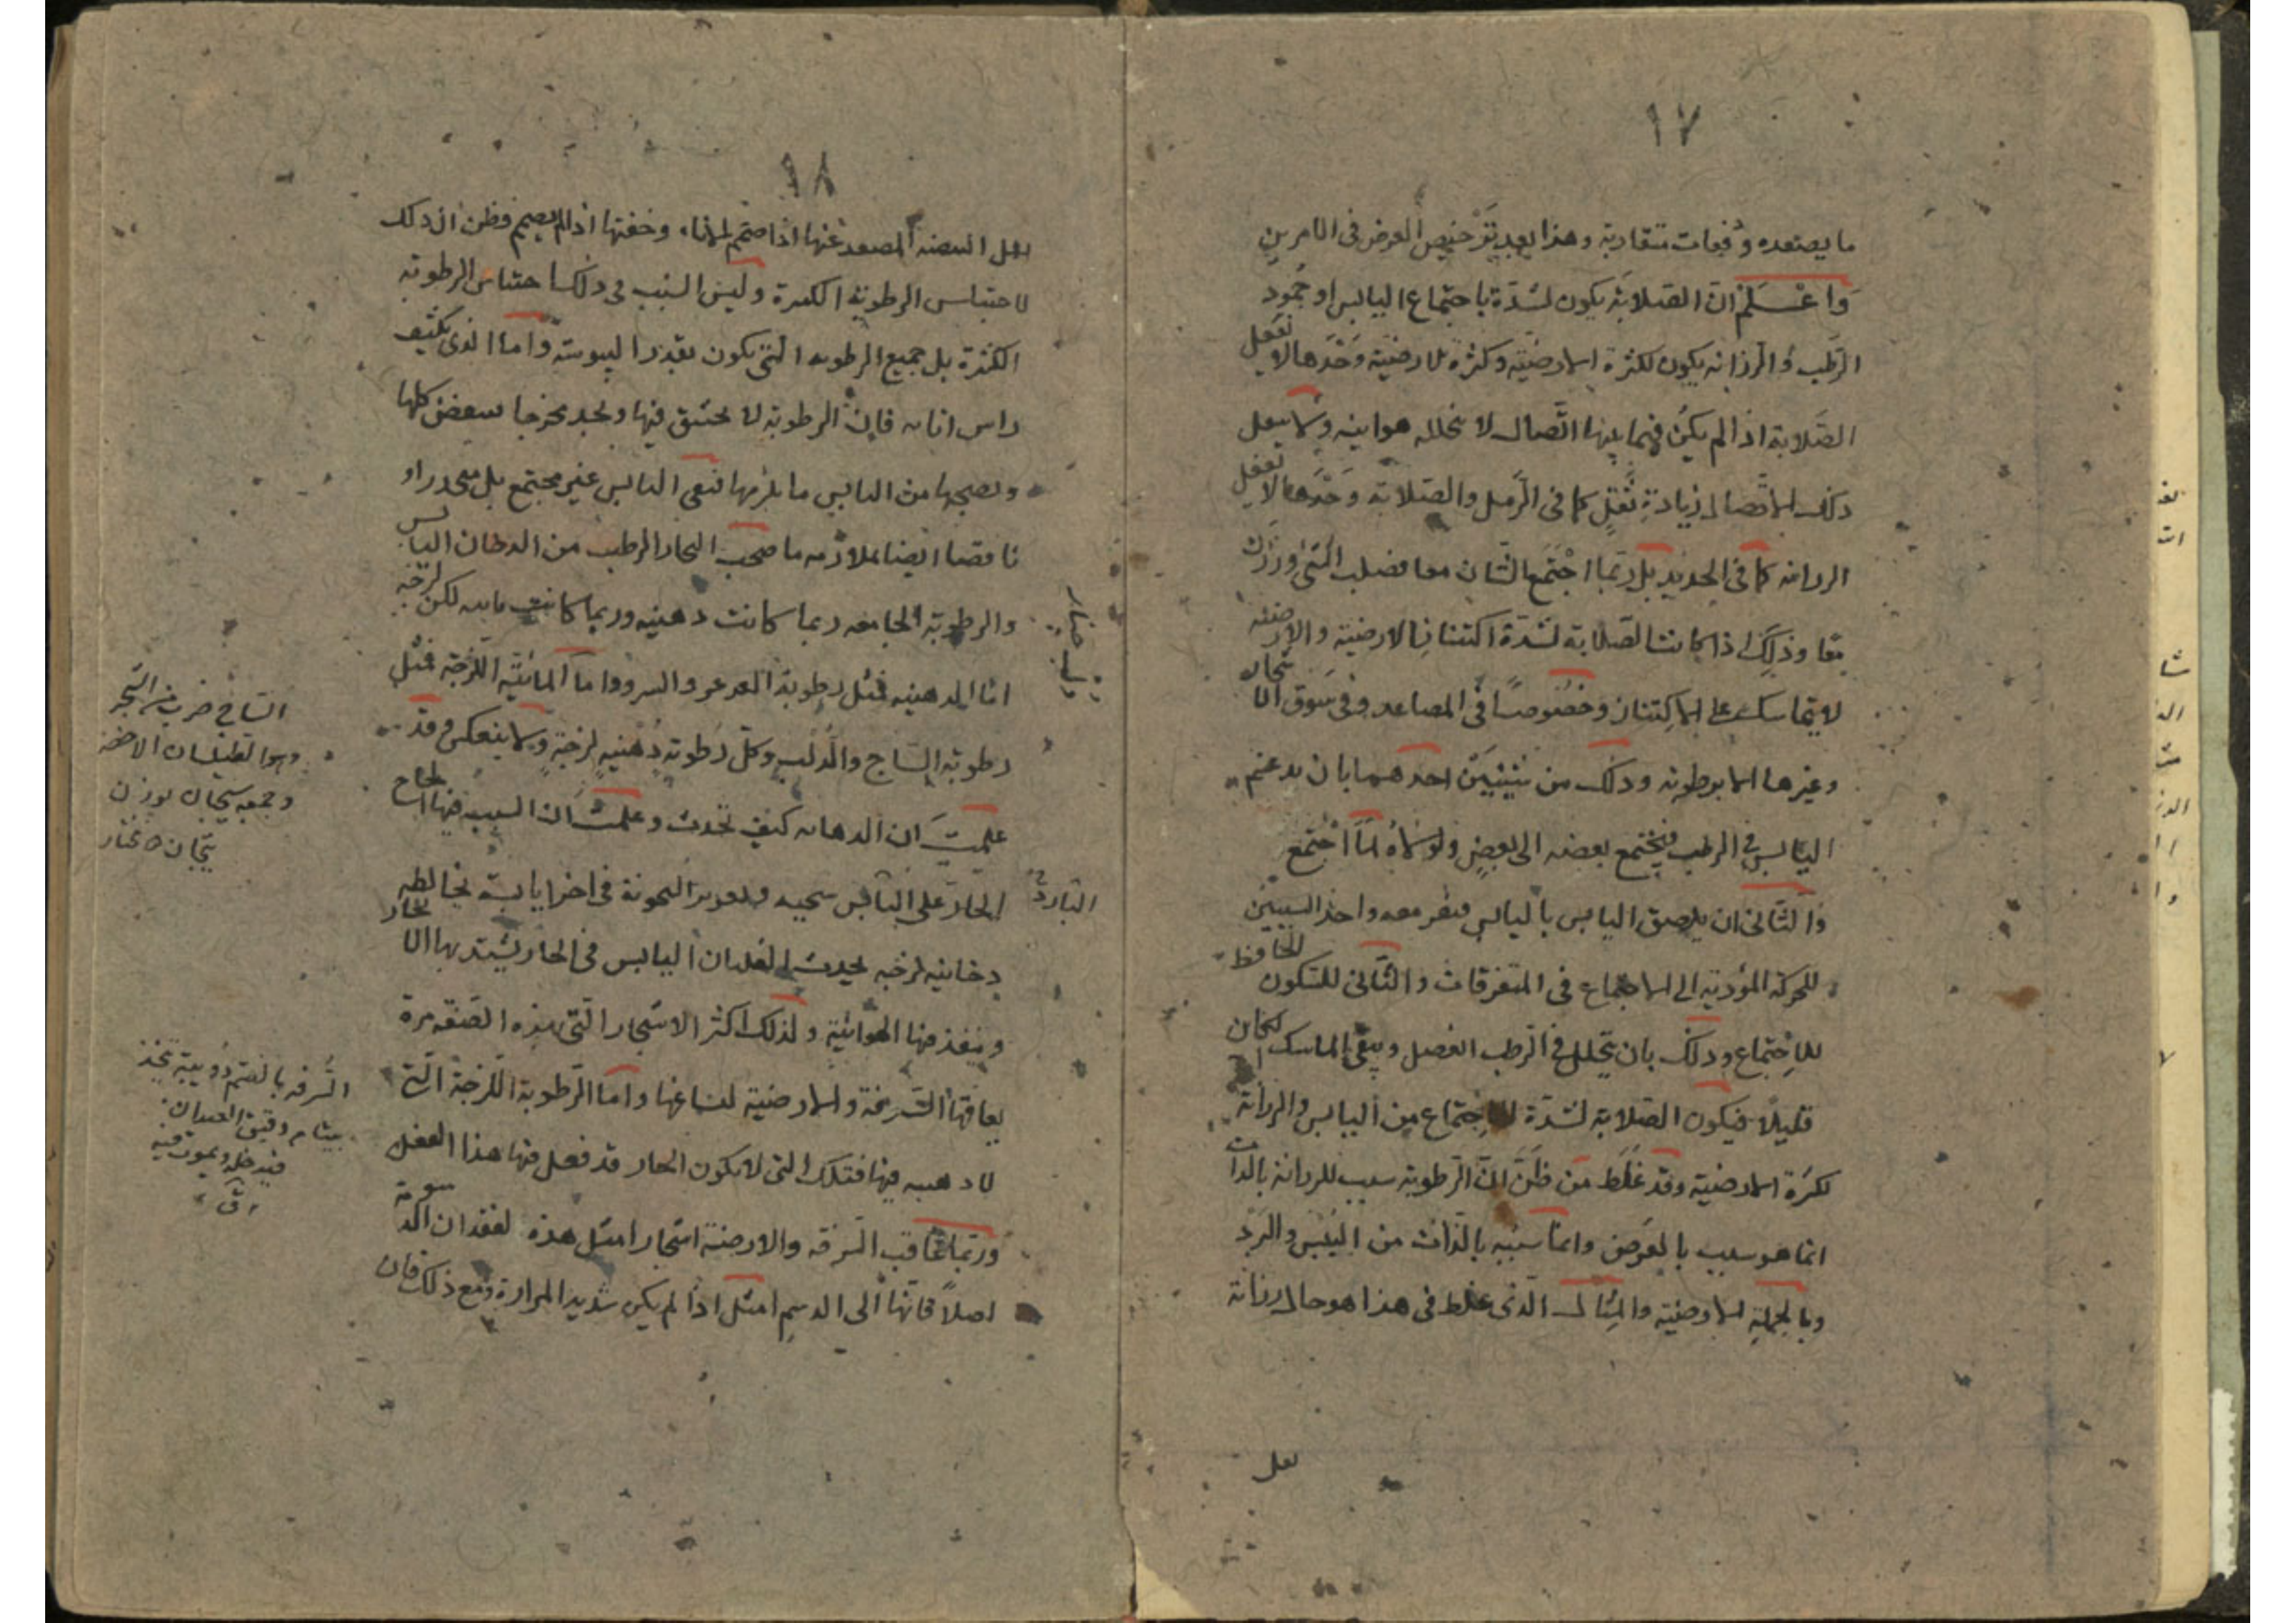 ١٧
ما يصتعده دفعات متقاربة وهذا بعد ترخيص العرض فى الامرين
وَاعْلَم انّ الصَلابة يكون لشدّة باجتماع اليابس او جمود
الرَطب والرزانه يكون لكثرة الارضيّة وكثرة الارضيّة وَحْدَها لا تفعل
الصَلابة اذا لم يكن فيما بينها اتّصال لا تخلله هوائيه ولا يفعل
ذلك الاتّصال زيادة ثقل كما فى الرّمل والصَلابة وَحْدَها لا تفعل
الرزانه كما فى الحديد بل ربّما اجْتمع الشّيئان معا فصلب الشى ورزن
معًا وذلك اذا كانت الصَلابة لشدّة اكتنان الارضية والارضيّة
لا يتماسك على الاكتنان وخصُوصًا فى المصاعد وفى سَوق النيجان
وغيرها الا برطوبه وذلك من شيئيين احدهما بان يدغم
اليابس فى الرطب فيجتمع بعضه الى بعض ولولاه لما اجْتمع
والثّانى ان يلصق اليابس باليابس معه واحد السببين
للحركة المؤدية الى الاجتماع فى المتفرقات والثّانى للسّكون الحافظ
للاِجتماع وذلك بان يتحلل فى الرّطب الفصل ويبقى الماسك فكان
قليلًا فيكون الصَلابة لشدّة الاجتماع من اليابس والرزانة
لكثرة الارضية وقد غَلَط مَن ظَنّ انّ الرّطوبة سبب للرزانة بالذات
انما هو سبب بالعرض وانما سببه بالذّات من اليَبْس والبَرْد
وبالجملة الارضيّة والمِثال الّذى غلط فى هذا هو حال رزانة
١٨
المصعد عنها اذا صمّم الاناء وخفتها اذا لم يصمم فظن ان ذلك
لاحتباس الرطوبة الكثيرة وليس السّبب فى ذلك احتباس الرطوبة
الكثيرة بل جميع الرطوبه التى يكون بقدر اليبوسة وامّا الذى يكشف
راس انائه فانّ الرطوبة لا تحتنق فيها وتجد مخرجا كلها
ويصحبها من اليابس ما يلزمها فيبقى اليابس غير مجتمع بل
ناقصا ايضا لملازمه ما صحب البخار الرطب من الدخان اليابس
والرطوبة الجامعه ربما كانت دهنيه وربما كانت مائيه لكن لزجه
امّا الدهنيه فمثل رطوبة العرعر والسرو واما المائيّة اللّزجة فمثل
رطوبة السّاج والدّلب وكلّ رَطوبة دُهنيه لزجةٍ ولا ينعكس وقد
علمتَ ان الدهانه كيف تحدث وعلمتَ ان السبب فيها الحاح
الحار على اليابس
دخانيه لزجه لفقدان اليابس فى الحار يشتد بها البخار
وينفذ فيها الهوائية ولذلك اكثر الاشجار التى بهذه الصّفه مرة
يعافها السّرفة والارضية وامّا الرّطوبة اللّزجة التى
لا دهنيه فيها فتلك التى لا يكون الحار قد فعل فيها هذا الفعل
وربّما عاقب السّرفه والارضية اشجارا مثل هذه لفقدان الدسومة
اصلاً فانّها الى الدسم امثل اذا لم يكن شديد المرارة ومع ذلك فان
دلب چنار
السّاج ضرب من الشّجر
وهو الطيلسان الاخضر
وجمعه سيجان بوزن
تيجان
البارد
السُّرفه بالضم دُويبة تتّخذ
بيتا من دقيق العيدان
فيدخله ويموت فيه